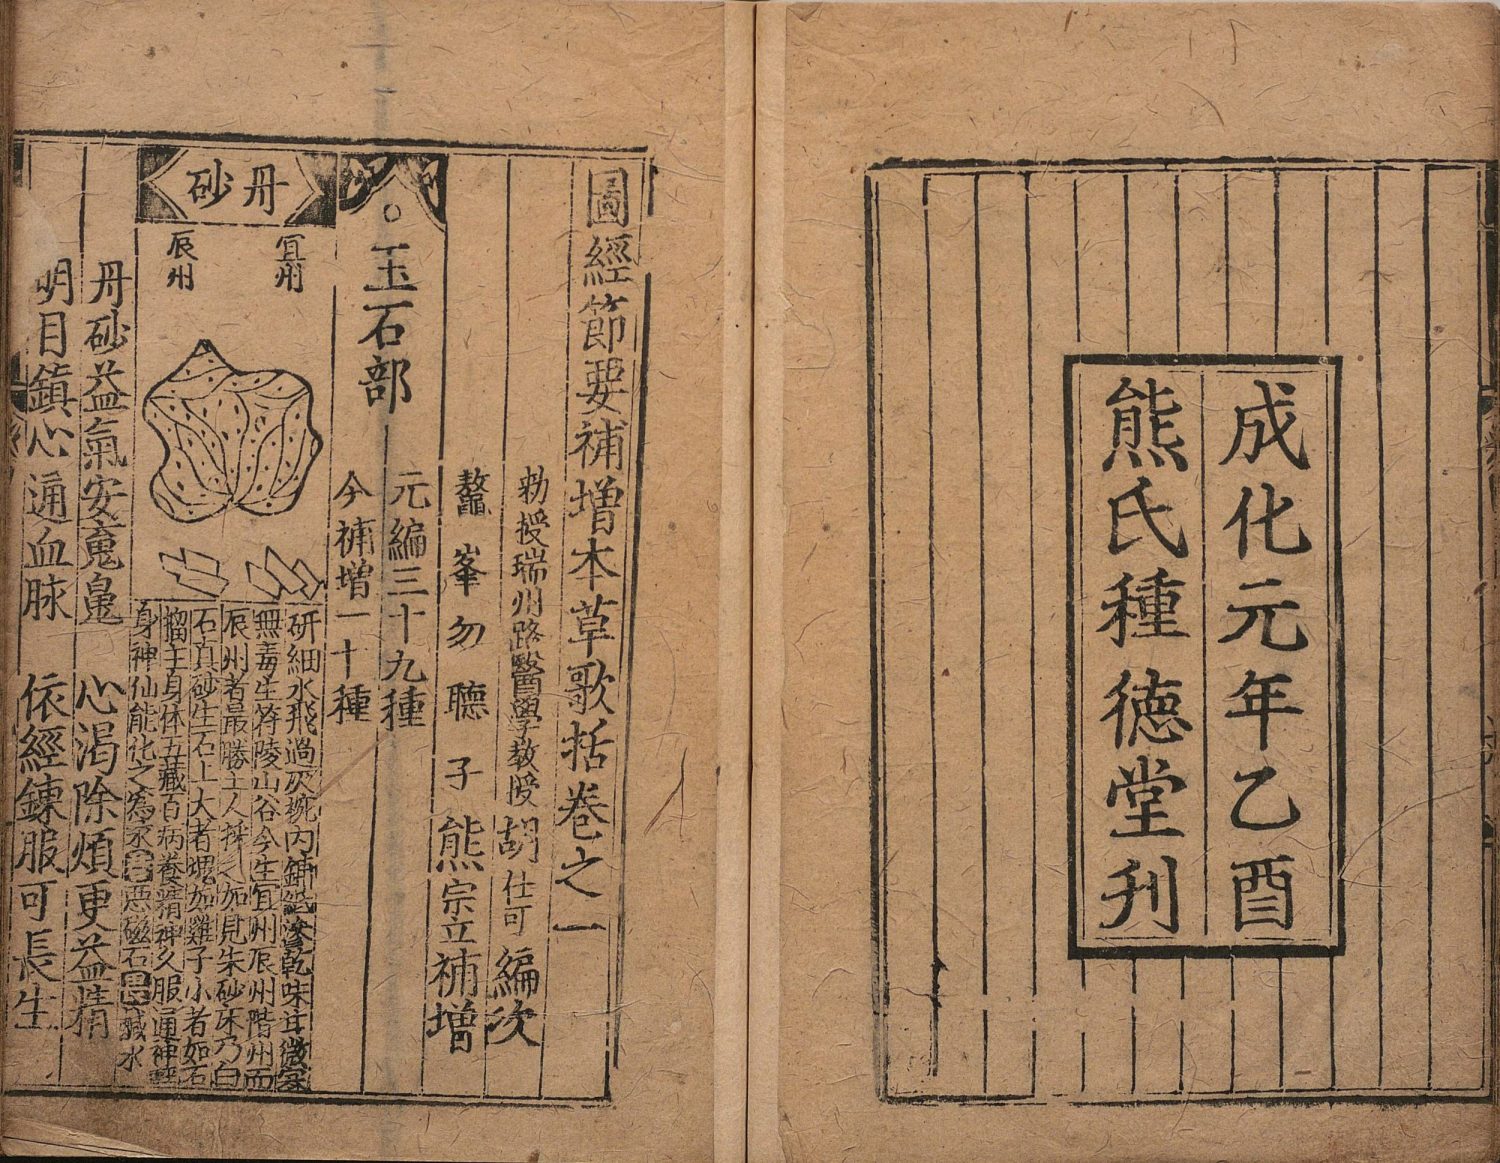 成化元年乙酉
熊氏種德堂刊
圖經節要補增本草歌括卷之一
勑授瑞州路醫學教授胡仕可編次
鰲峯勿聽子熊宗立補增
玉石部
元編三十九種
今補增一十種
丹砂
宜州
辰州
研細水飛過灰椀内鋪紙滲乾味甘微寒
無毒生符陵山谷今生宜州辰州階州而
辰州者最勝土人採之加見朱砂床乃白
石真砂生石上大者堪如雞子小者如石
榴主身体五藏百病養精神久服通神輕
身神仙能化之為汞 惡磁石 鹹水
丹砂益氣安䰟鬼 心渴除煩更益精
明目鎮心通血脉 依經鍊服可長生